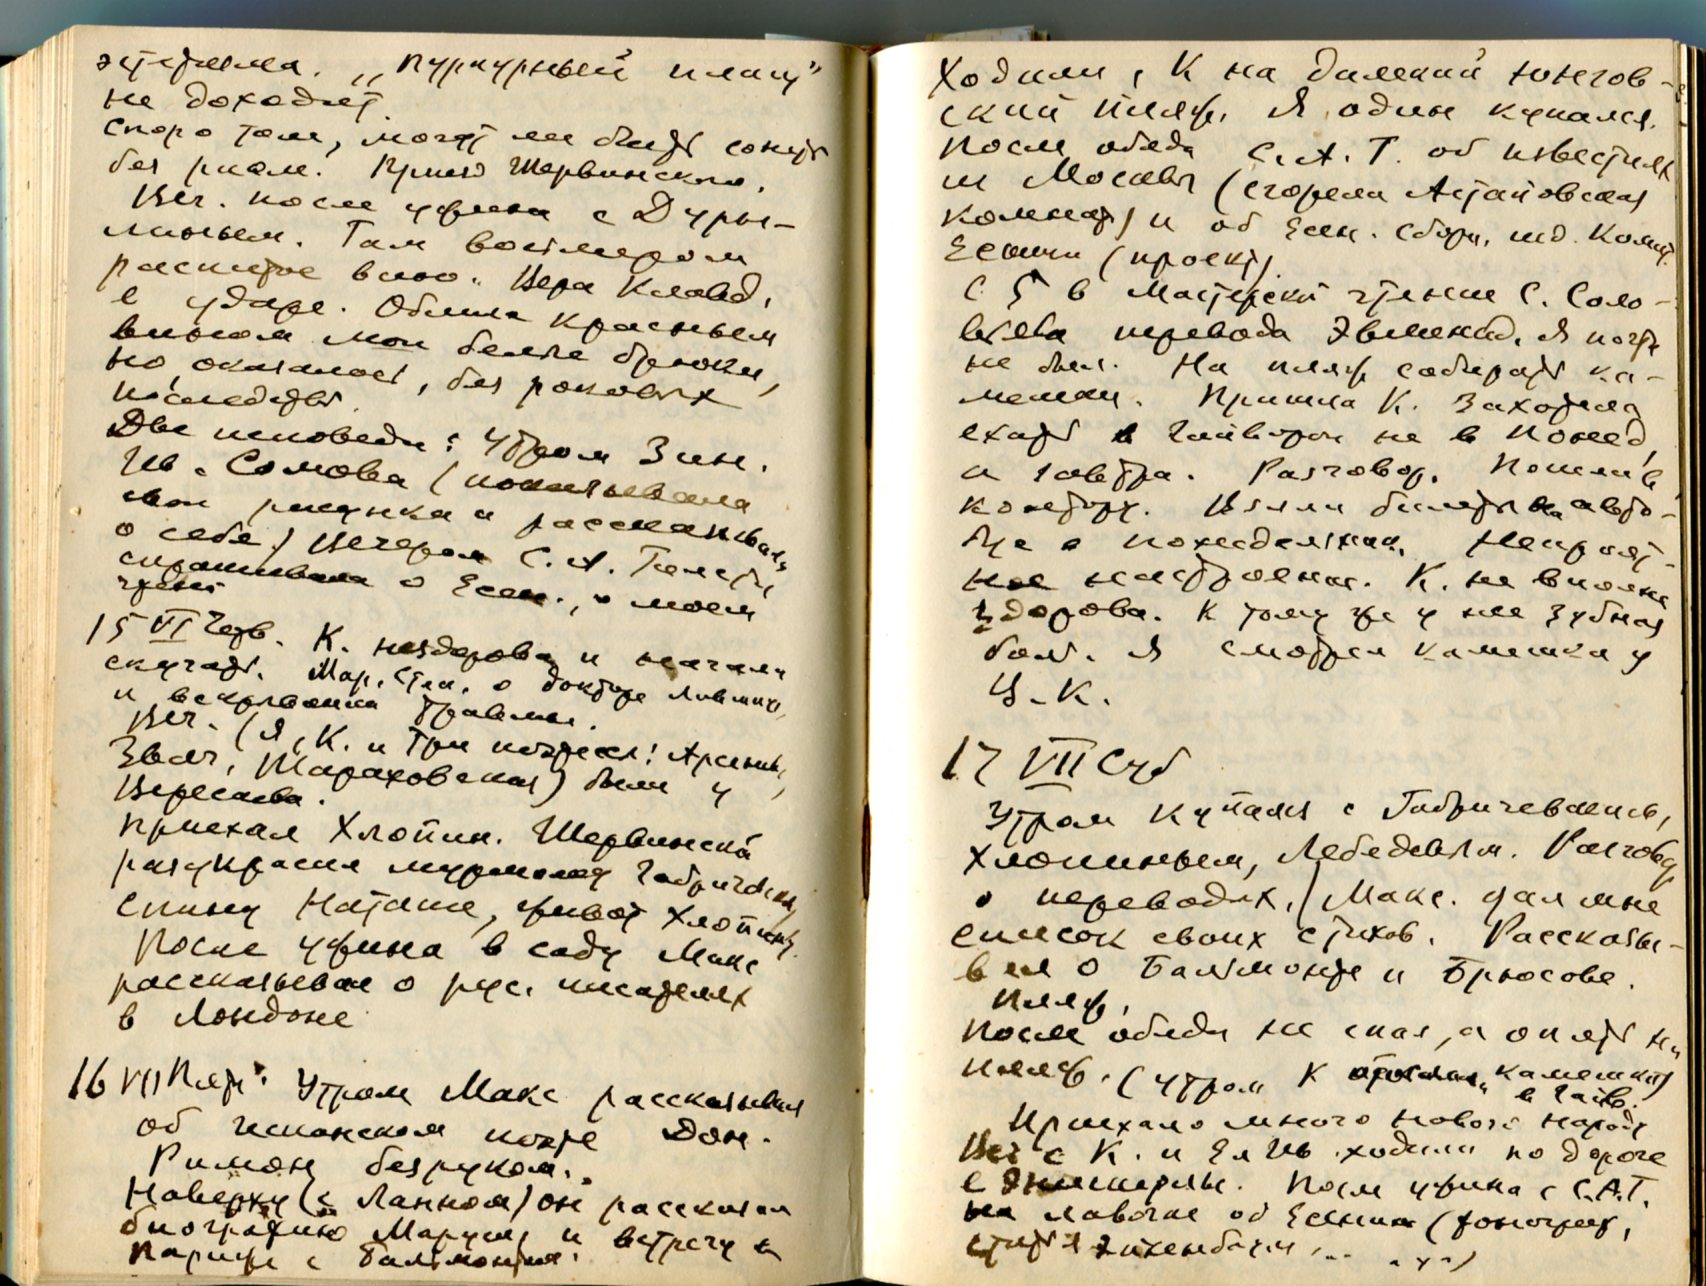 "Пурпурный плащ"
не доходит.
Скоро там, могут ли быть сонеты
без рифм. Прише Шервинского.
Веч. после ужина с Дуры-
линым. Там восьмером
распитое вино. Вера Клавд.
в ударе. Облила красным
вином мои белые брюки,
но, оказалось, без роковых
последствий.
Две исповеди: утром Зин.
Ив. Сомова (показывала
свои рисунки и рассказывала
о себе) Вечером С. А. Толстая,
спрашивала о Есен., о моем
чтении
15 VII Четв. К. нездорова и начала
скучать. Мар. Степ. о докторе
и вскрывании
Веч. (Я, К. и три поэтессы:
Звяг., Шараховская) были у
Вересаева.
Приехал Хлопин. Шервинский
разукрасил Габричевск.,
спину Наташе, живот Хлопину.
После ужина в саду Макс
рассказывал о рус. писателях
в Лондоне
16 VII Пятн. Утром Макс рассказывал
об испанском поэте Дон.
Рамоне безруком.
Наверху (с Ланном) он рассказал
биографию и встречу в
Париже с Бальмонтом.
Ходили с К на далекий юнгов-
ский пляж. Я один купался.
После обеда С. А. Т. об известиях
из Москвы (сгорела Астаповская
комната) и об Есен. сборн. изд. Комит.
Есенина (проект).
С 5 в Мастерской чтение С. Соло-
вьева перевода Эвменид. Я почти
не был. На пляж собирать ка-
мешки. Пришла К. Захотела
ехать не в Понед,
а завтра. Разговор. Пошли в
контору. Взяли билеты на авто-
бус в понедельник. Неприят-
ное настроение. К. не вполне
здорова. К тому же у нее зубная
боль. Я смотрел камешки у
В. К.
17 VII Суб
Утром купался с Габричевским,
Хлопиным, Лебедевым. Разговор
о переводах. Макс. дал мне
список своих стихов. Рассказы-
вал о Бальмонте и Брюсове.
Пляж.
После обеда не спал, а опять на
пляж. (Утром К камешки)
Приехало много нового народу
Веч с К. и Ел Ив. ходили по дороге
После ужина с С.А.Т.
на лавочке об Есенине (фонограф,